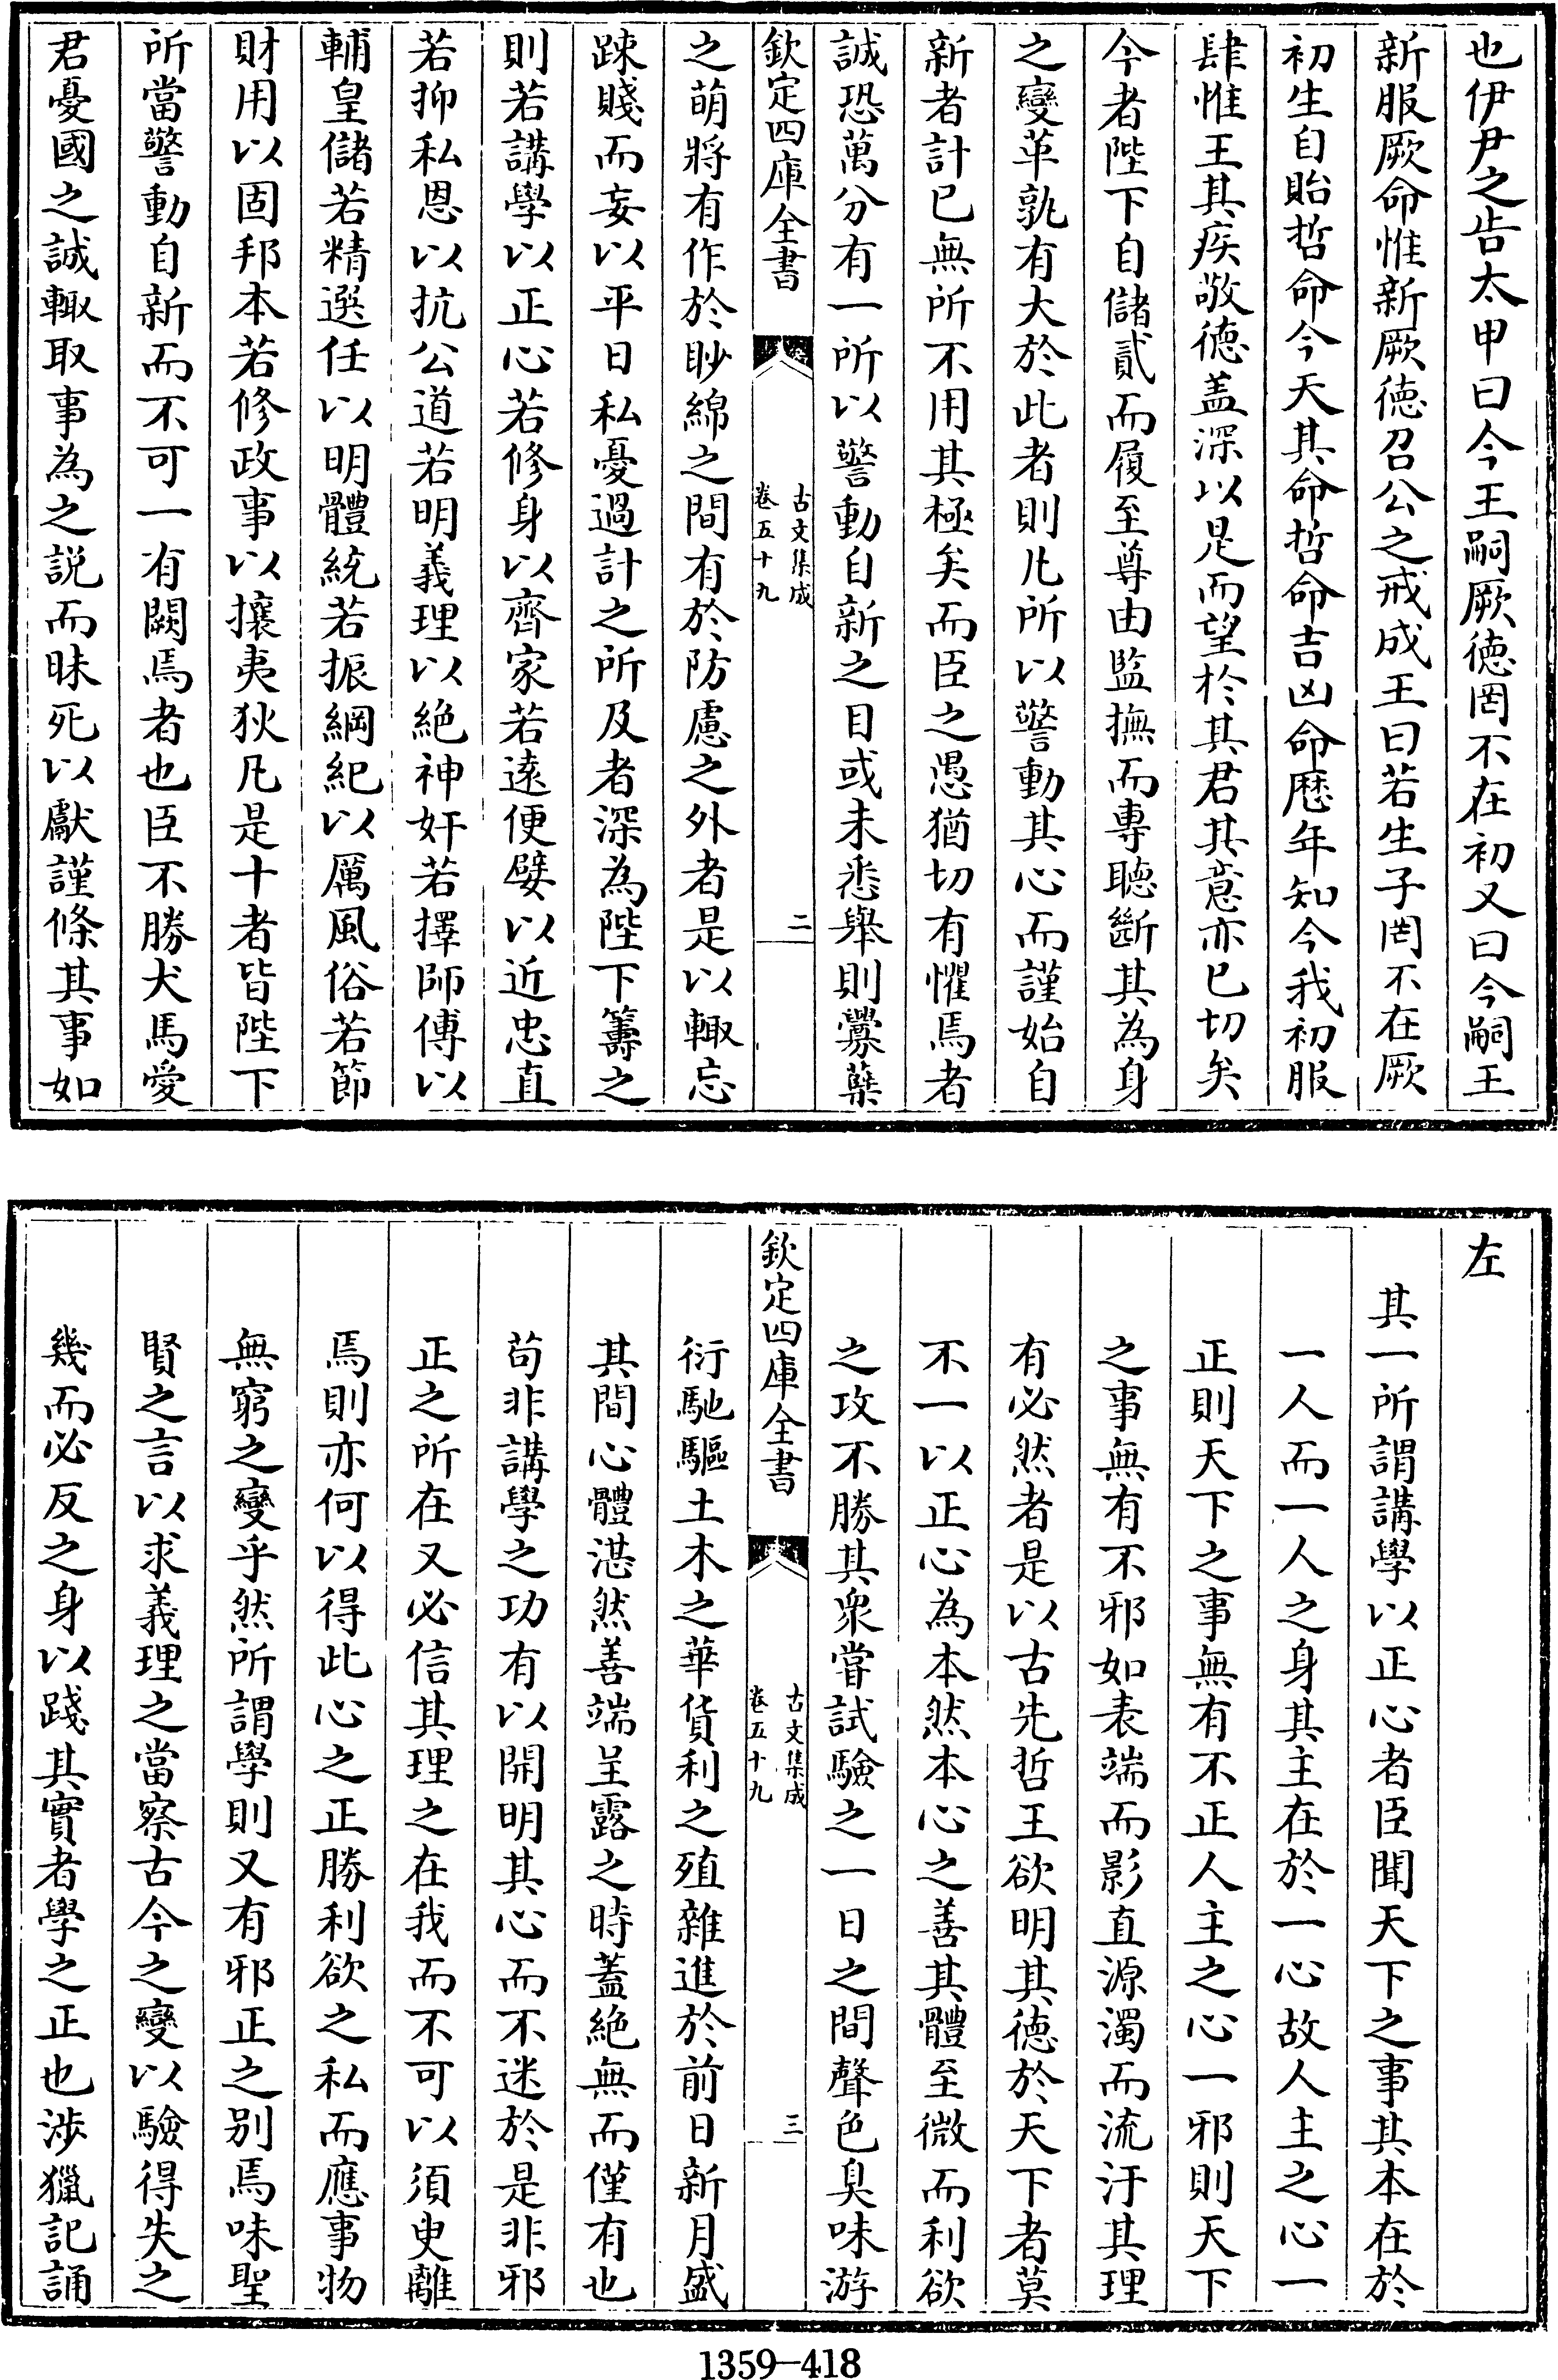 也伊尹之告太甲曰今王嗣厥徳罔不在初又曰今嗣王
新服厥命惟新厥徳召公之戒成王曰若生子罔不在厥
初生自貽哲命今天其命哲命吉凶命厯年知今我初服
肆惟王其疾敬徳盖深以是而望於其君其意亦已切矣
今者陛下自儲貳而履至尊由監撫而專聴斷其為身
之變革孰有大於此者則凡所以警動其心而謹始自
新者計已無所不用其極矣而臣之愚猶切有懼焉者
誠恐萬分有一所以警動自新之目或未悉舉則釁蘖
欽定四庫全書
古文集成
卷五十九
二
之萌將有作於眇綿之間有於防慮之外者是以輙忘
踈賤而妄以平日私憂過計之所及者深為陛下籌之
則若講學以正心若修身以齊家若逺便嬖以近忠直
若抑私恩以抗公道若明義理以絶神奸若擇師傅以
輔皇儲若精選任以明體統若振綱紀以厲風俗若節
財用以固邦本若修政事以攘夷狄凡是十者皆陛下
所當警動自新而不可一有闕焉者也臣不勝犬馬愛
君憂國之誠輙取事為之説而昧死以獻謹條其事如
左
其一所謂講學以正心者臣聞天下之事其本在於
一人而一人之身其主在於一心故人主之心一
正則天下之事無有不正人主之心一邪則天下
之事無有不邪如表端而影直源濁而流汙其理
有必然者是以古先哲王欲明其徳於天下者莫
不一以正心為本然本心之善其體至微而利欲
之攻不勝其衆嘗試驗之一日之間聲色臭味游
欽定四庫全書
古文集成
卷五十九
三
衍馳驅土木之華貨利之殖雜進於前日新月盛
其間心體湛然善端呈露之時蓋絶無而僅有也
苟非講學之功有以開明其心而不迷於是非邪
正之所在又必信其理之在我而不可以須臾離
焉則亦何以得此心之正勝利欲之私而應事物
無窮之變乎然所謂學則又有邪正之别焉味聖
賢之言以求義理之當察古今之變以驗得失之
幾而必反之身以踐其實者學之正也渉獵記誦
1359—418